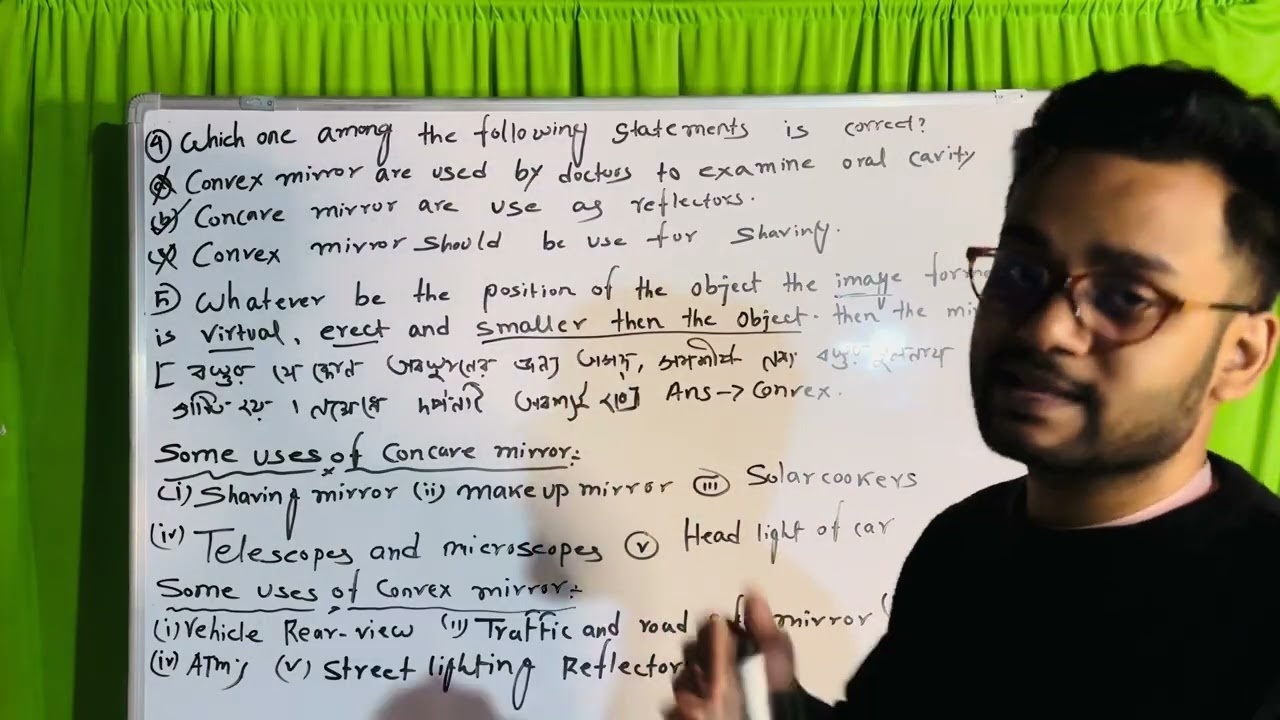 ④ Which one among the following statements is correct?
(a) Convex mirror are used by doctors to examine oral cavity
(b) Concave mirror are use as reflectors.
(c) Convex mirror should be use for shaving.
5) Whatever be the position of the object the image form
is virtual, erect and smaller then the object. then the mi
[ বস্তুর যে কোন অবস্থানের জন্য অসদ, সমশীর্ষ
Ans → Convex.
Some uses of Concave mirror:-
(i) Shaving mirror (ii) makeup mirror (iii) Solar cookers
(iv) Telescopes and microscopes (v) Head light of car
Some uses of Convex mirror:-
(i) Vehicle Rear-view (ii) Traffic and road mirror (
(iv) ATM's (v) Street lighting Reflector